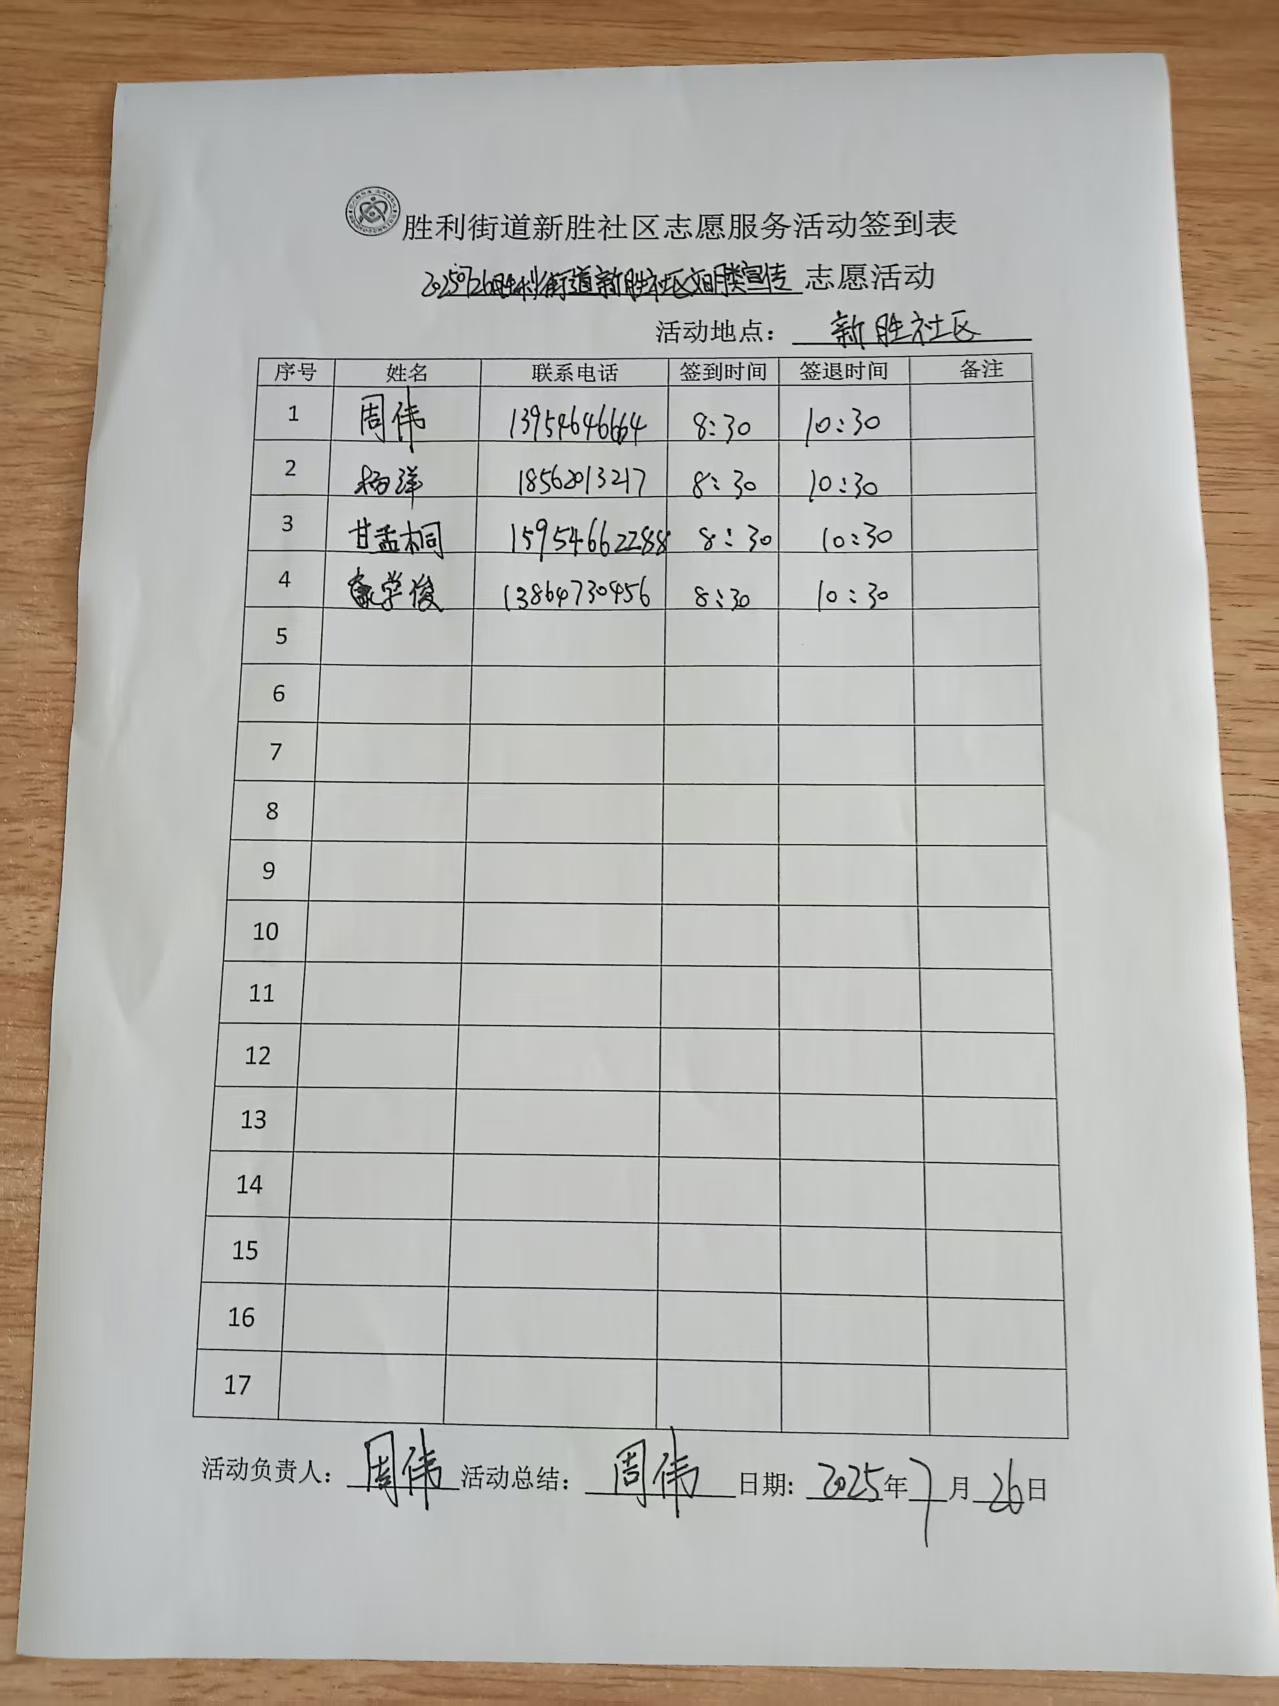 胜利街道新胜社区志愿服务活动签到表
20250726胜利街道新胜社区文明类宣传 志愿活动
活动地点： 新胜社区
序号 姓名 联系电话 签到时间 签退时间 备注
1 周伟 13954646664 8:30 10:30
2 杨洋 18562013217 8:30 10:30
3 甘孟桐 15954662288 8:30 10:30
4 学俊 13864730456 8:30 10:30
5
6
7
8
9
10
11
12
13
14
15
16
17
活动负责人： 周伟 活动总结： 周伟 日期: 2025年7月26日